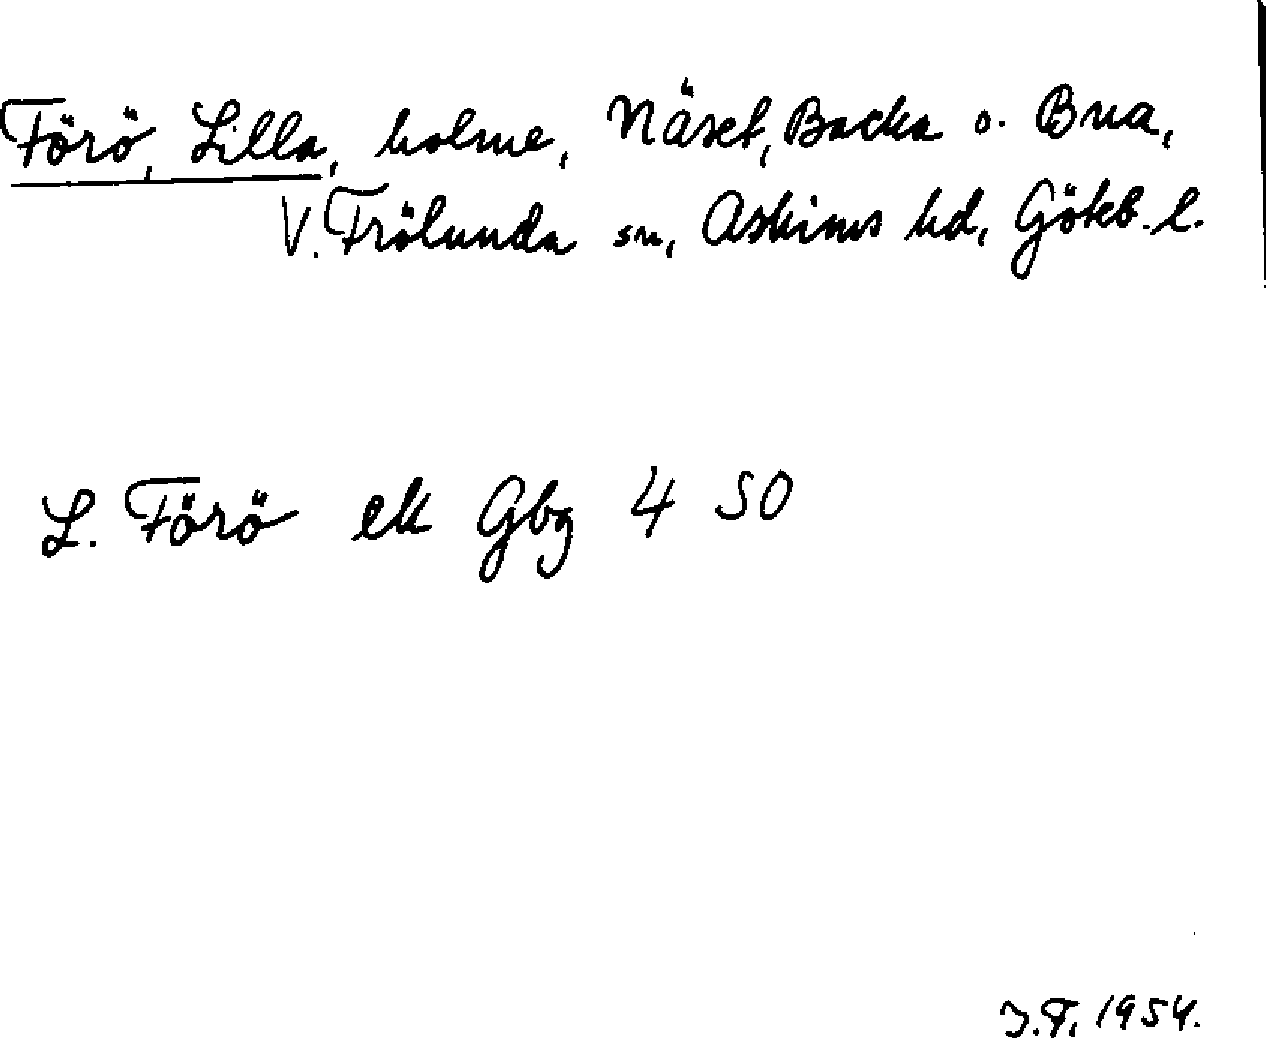 Förö, Lilla, holme, Näset, Backa o. Bua,
V. Frölunda sn, Askims hd, Göteb. l.
L. Förö ek Gbg 4 SO
J.F. 1954.